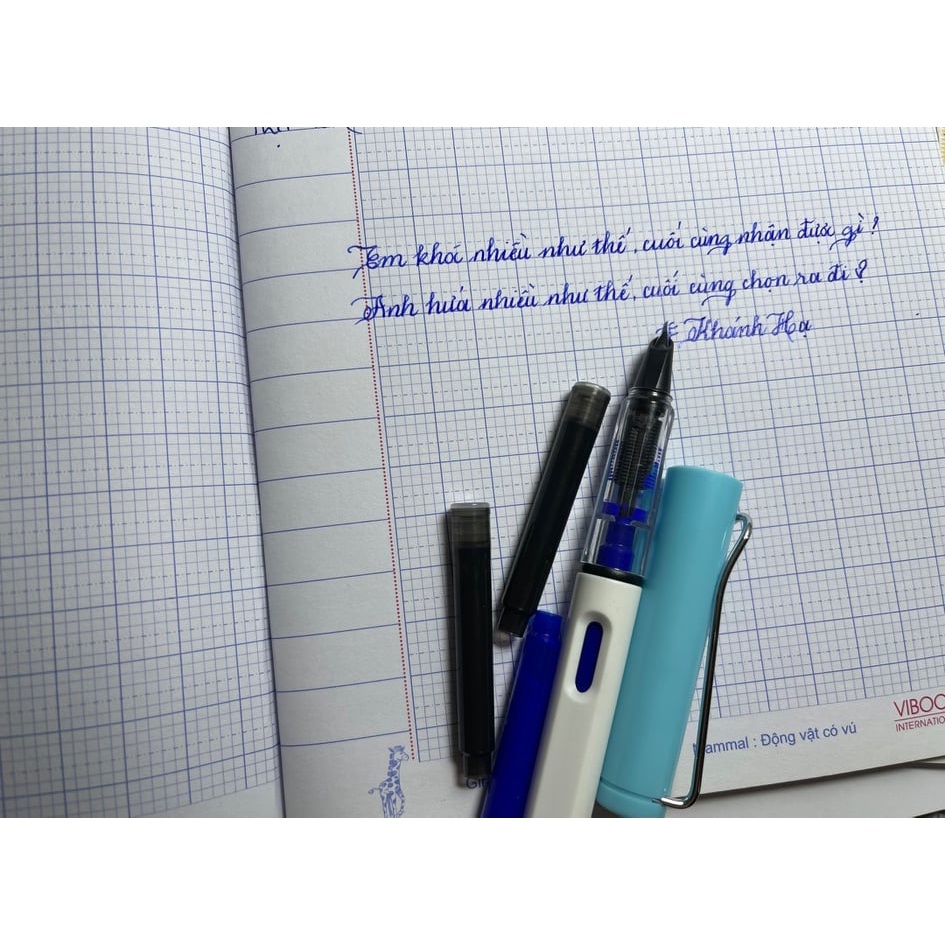 Em khóc nhiều như thế, cuối cùng nhận được gì?
Anh hứa nhiều như thế, cuối cùng chọn ra đi?
Khánh Hạ
Mammal : Động vật có vú